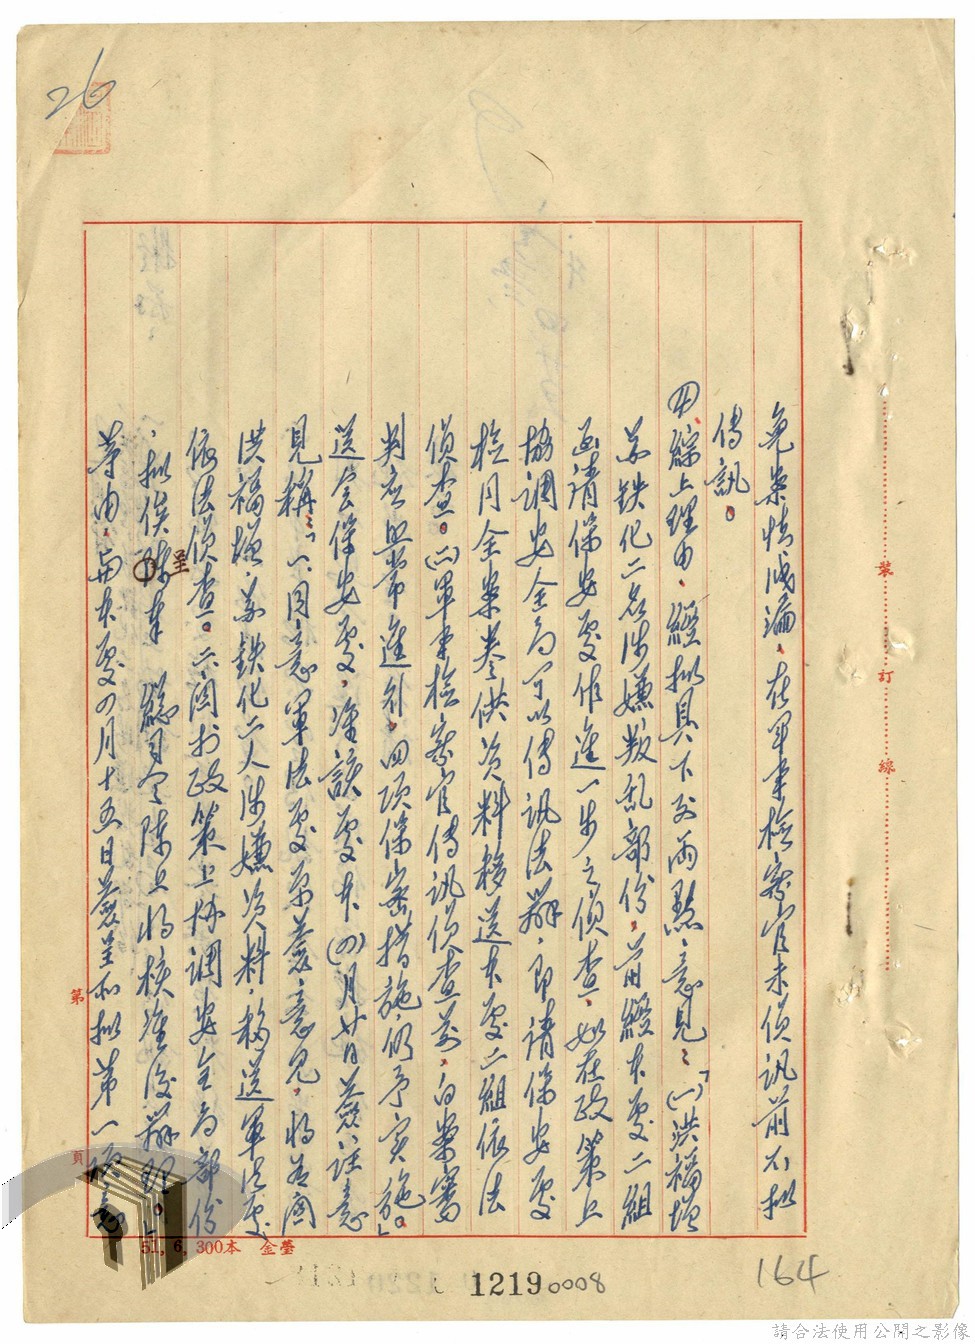 26
免案情洩漏，在軍事檢察官未偵訊前不擬
傳訊。
四、綜上理由，經擬具下列兩點意見：「㈠洪福增
蘇鉄化二名涉嫌叛乱部份，前經本處二組
函請保安處作進一步之偵查，如在政策上
協調安全局可以傳訊法辦，即請保安處
檢同全案卷供資料移送本處二組依法
偵查。㈡軍事檢察官傳訊偵查前，白案審
判應照常進行。四項保密措施，仍予实施。」
送会保安處，准該處本㈣月廿日簽註意
見稱：「一、同意軍法處原簽意見，將有関
洪福增、蘇鉄化二人涉嫌資料，移送軍法處
依法偵查。二、関於政策上協調安全局部份
，擬俟呈奉 總司令陳上將核准後辦理。」
等由。與本處四月十五日簽呈和擬第一項意
裝 訂 線
第 頁
51, 6, 300本 金瑩
12190008
164
請合法使用公開之影像